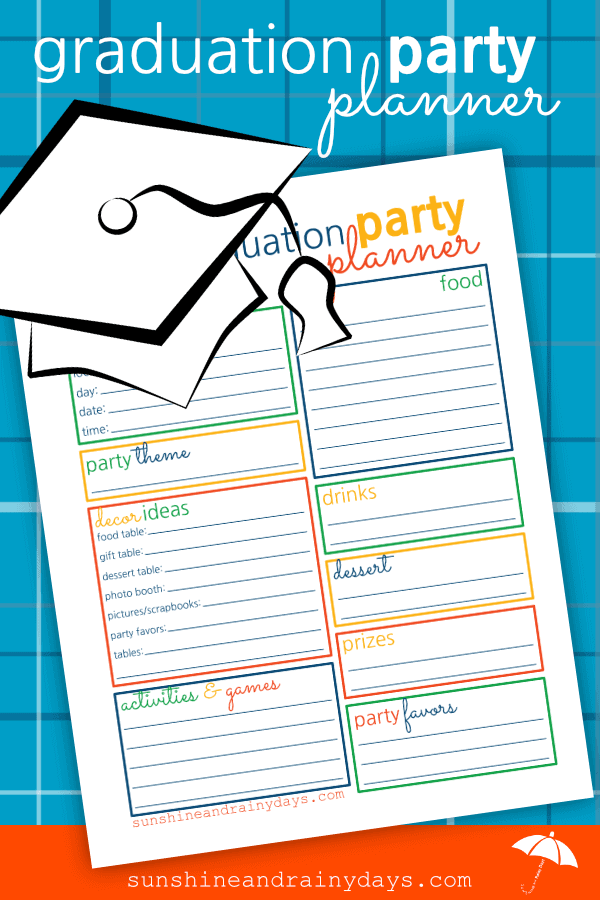 graduation party
planner
uation party
planner
food
day:
date:
time:
party theme
decor ideas
food table:
gift table:
dessert table:
photo booth:
pictures/scrapbooks:
party favors:
tables:
activities & games
drinks
dessert
prizes
party favors
sunshineandrainydays.com
sunshineandrainydays.com